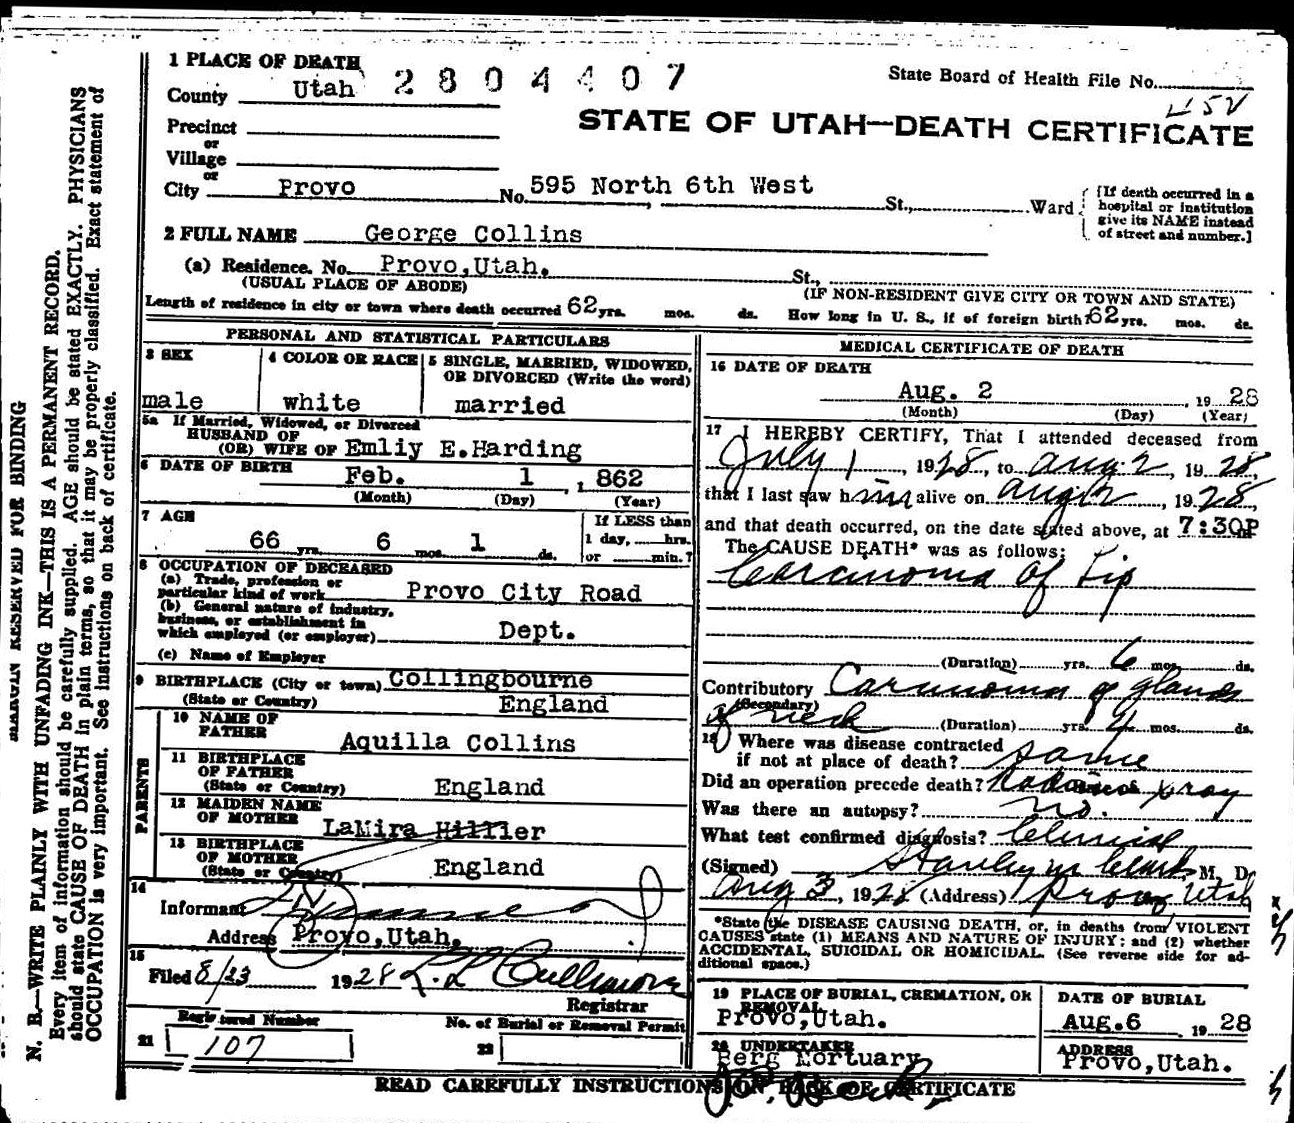 1 PLACE OF DEATH
County Utah 2804407
State Board of Health File No.
STATE OF UTAH—DEATH CERTIFICATE
Precinct
or
Village
or
City Provo No. 595 North 6th West St., Ward
{If death occurred in a
hospital or institution
give its NAME instead
of street and number.]
2 FULL NAME George Collins
(a) Residence. No. Provo,Utah. St.,
(USUAL PLACE OF ABODE) (IF NON-RESIDENT GIVE CITY OR TOWN AND STATE)
Length of residence in city or town where death occurred 62 yrs. mos. ds. How long in U. S., if of foreign birth? 62 yrs. mos. ds.
PERSONAL AND STATISTICAL PARTICULARS
3 SEX
male
4 COLOR OR RACE
white
5 SINGLE, MARRIED, WIDOWED,
OR DIVORCED (Write the word)
married
5a If Married, Widowed, or Divorced
HUSBAND OF
(OR) WIFE OF Emliy E.Harding
6 DATE OF BIRTH Feb. 1 , 1 862
(Month) (Day) (Year)
7 AGE
66 yrs. 6 mos. 1 ds.
If LESS than
1 day, hrs.
or min.?
8 OCCUPATION OF DECEASED
(a) Trade, profession or
particular kind of work Provo City Road
(b) General nature of industry,
business, or establishment in
which employed (or employer) Dept.
(c) Name of Employer
9 BIRTHPLACE (City or town) Collingbourne
(State or Country) England
PARENTS
10 NAME OF
FATHER Aquilla Collins
11 BIRTHPLACE
OF FATHER
(State or Country) England
12 MAIDEN NAME
OF MOTHER LaMira Hillier
13 BIRTHPLACE
OF MOTHER
(State or Country) England
14
Informant
Address Provo,Utah.
15
Filed 8/23 1928
Registrar
Registered Number
21 107
No. of Burial or Removal Permit
22
MEDICAL CERTIFICATE OF DEATH
16 DATE OF DEATH
Aug. 2 , 19 28
(Month) (Day) (Year)
17 I HEREBY CERTIFY, That I attended deceased from
July 1 , 1928, to Aug 2 , 1928,
that I last saw him alive on Aug 2 , 1928,
and that death occurred, on the date stated above, at 7:30P
The CAUSE DEATH* was as follows:
Carcinoma of Lip
(Duration) yrs. 6 mos. ds.
Contributory Carcinoma of glands
(Secondary)
of neck (Duration) yrs. mos. ds.
18 Where was disease contracted
if not at place of death? same
Did an operation precede death? xray
Was there an autopsy? no.
What test confirmed diagnosis? Clinical
(Signed) Stanley M Clark, M. D.
Aug 3, 1928 (Address) Provo, Utah
*State the DISEASE CAUSING DEATH, or, in deaths from VIOLENT
CAUSES state (1) MEANS AND NATURE OF INJURY; and (2) whether
ACCIDENTAL, SUICIDAL OR HOMICIDAL. (See reverse side for ad-
ditional space.)
19 PLACE OF BURIAL, CREMATION, OR
REMOVAL
Provo,Utah.
DATE OF BURIAL
Aug.6 19 28
20 UNDERTAKER
Berg Mortuary
ADDRESS
Provo,Utah.
READ CAREFULLY INSTRUCTIONS ON BACK OF CERTIFICATE
MARGIN RESERVED FOR BINDING
N. B.—WRITE PLAINLY WITH UNFADING INK—THIS IS A PERMANENT RECORD.
Every item of information should be carefully supplied. AGE should be stated EXACTLY. PHYSICIANS
should state CAUSE OF DEATH in plain terms, so that it may be properly classified. Exact statement of
OCCUPATION is very important. See instructions on back of certificate.